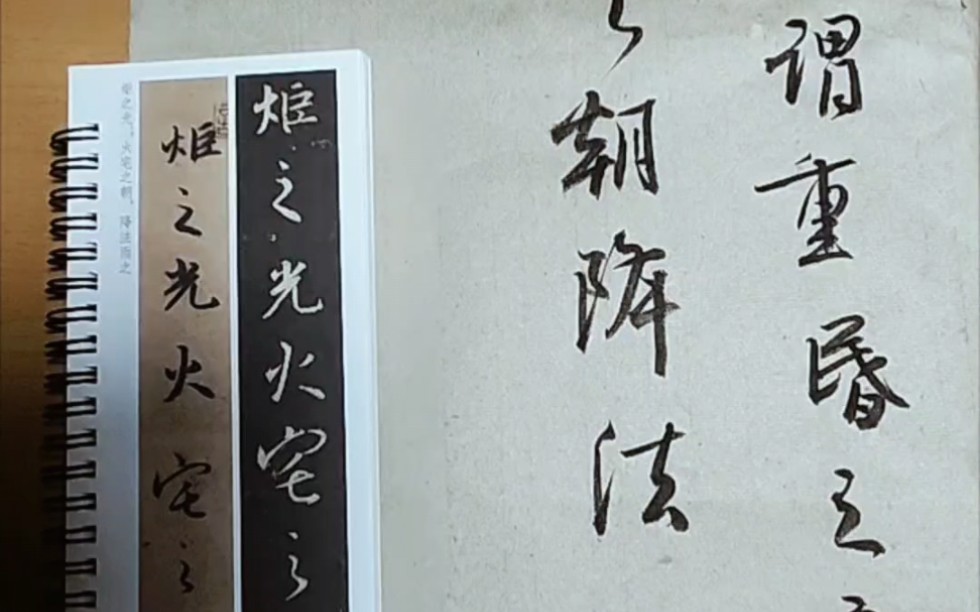 谓重昏之
之朝降法
炬之光火宅之
炬之光火宅之
炬之光,火宅之朝,降法雨之